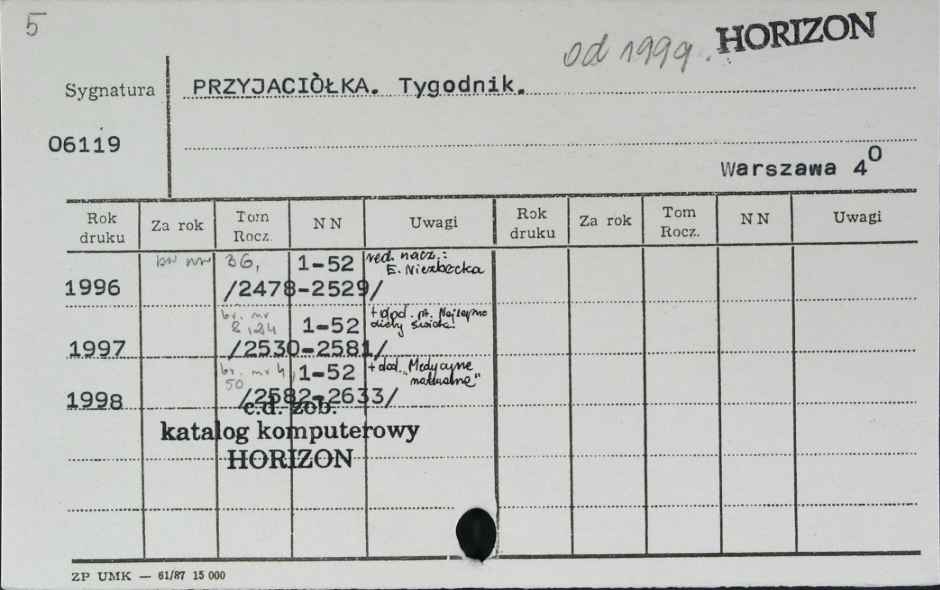 5
od 1999. HORIZON
Sygnatura PRZYJACIÒŁKA. Tygodnik.
06119
Warszawa 4⁰
Rok druku Za rok Tom Rocz. NN Uwagi Rok druku Za rok Tom Rocz. NN Uwagi
br nr 36, 1-52 red. nacz.:
E. Niezbecka
1996 /2478-2529/
br. nr + dod. pt.
8, 24 1-52 diety świata"
1997 /2530-2581/
br. nr 4, 1-52 + dod. „Medycyna
50 naturalna"
1998 /2582-2633/
c.d. zob.
katalog komputerowy
HORIZON
ZP UMK — 61/87 15 000